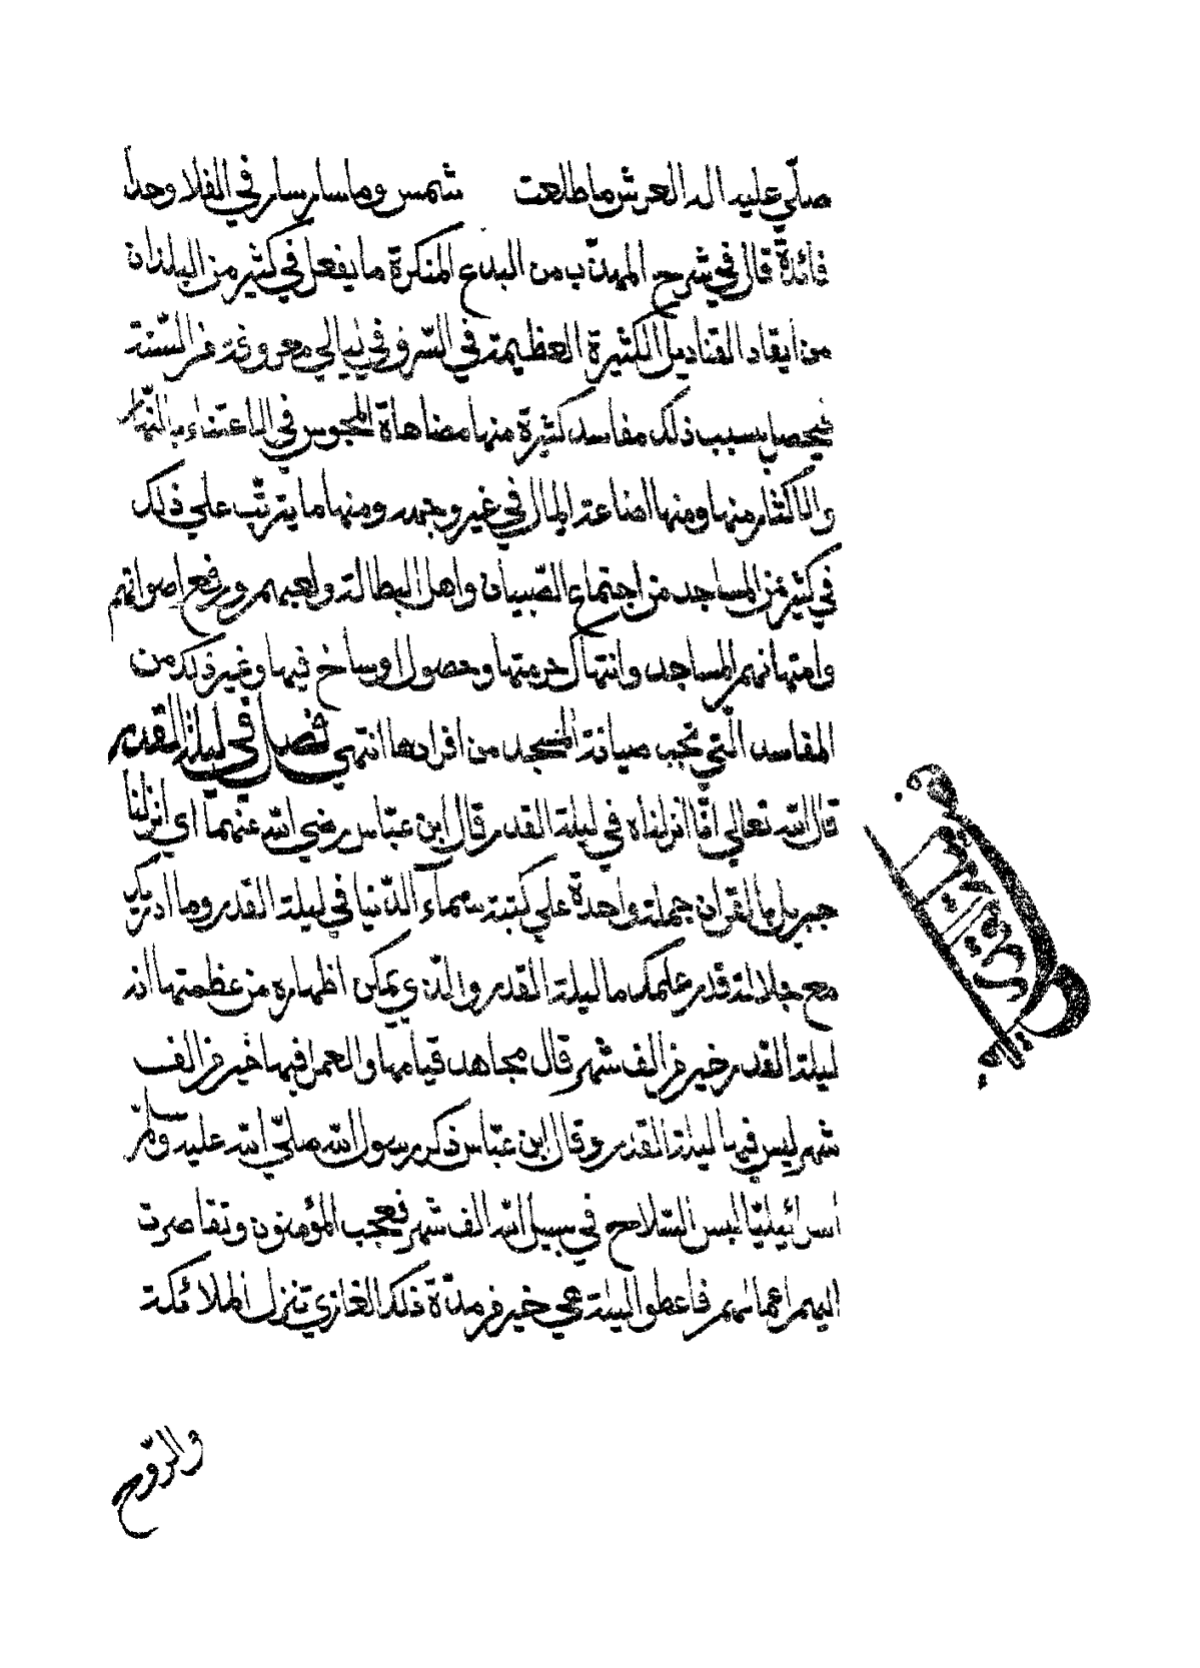 صلّي عليه اله العرش ما طلعت شمس وما سار سار في الفلا وحدا
فائدة قال في شرح المهذب من البدع المنكرة ما يفعل في كثير من البلدان
من ايقاد القناديل الكثيرة العظيمة في السرف في ليالي معروفة من السّنة
فيحصل بسبب ذلك مفاسد كثيرة منها مضاهاة المجوس في الاعتناء بالنّار
والاكثار منها ومنها اضاعة المال في غير وجهه ومنها ما يترتّب علي ذلك
في كثير من المساجد من اجتماع الصّبيان واهل البطالة ولعبهم ورفع اصواتهم
وامتهانهم المساجد وانتهاك حرمتها وحصول اوساخ فيها وغير ذلك من
المفاسد الّتي تجب صيانة المسجد من افرادها انتهي فصل في ليلة القدر
قال الله تعالي انّا انزلناه في ليلة القدر قال ابن عبّاس رضي الله عنهما اي انزلنا
جبريل بالقران جملة واحدة علي كتبة سمآء الدّنيا في ليلة القدر وما ادريك
مع جلالة قدر علمك ما ليلة القدر والّذي يمكن اظهاره من عظمتها انه
ليلة القدر خير من الف شهر قال مجاهد قيامها والعمل فيها خير من الف
شهر ليس فيها ليلة القدر وقال ابن عبّاس ذكر رسول الله صلّي الله عليه وسلم
اسرائيليّا لبس السّلاح في سبيل الله الف شهر فعجب المؤمنون وتقاصرت
اليهم اعمالهم فاعطوا ليلة هي خير من مدّة ذلك الغازي تنزل الملائكة
والرّوح